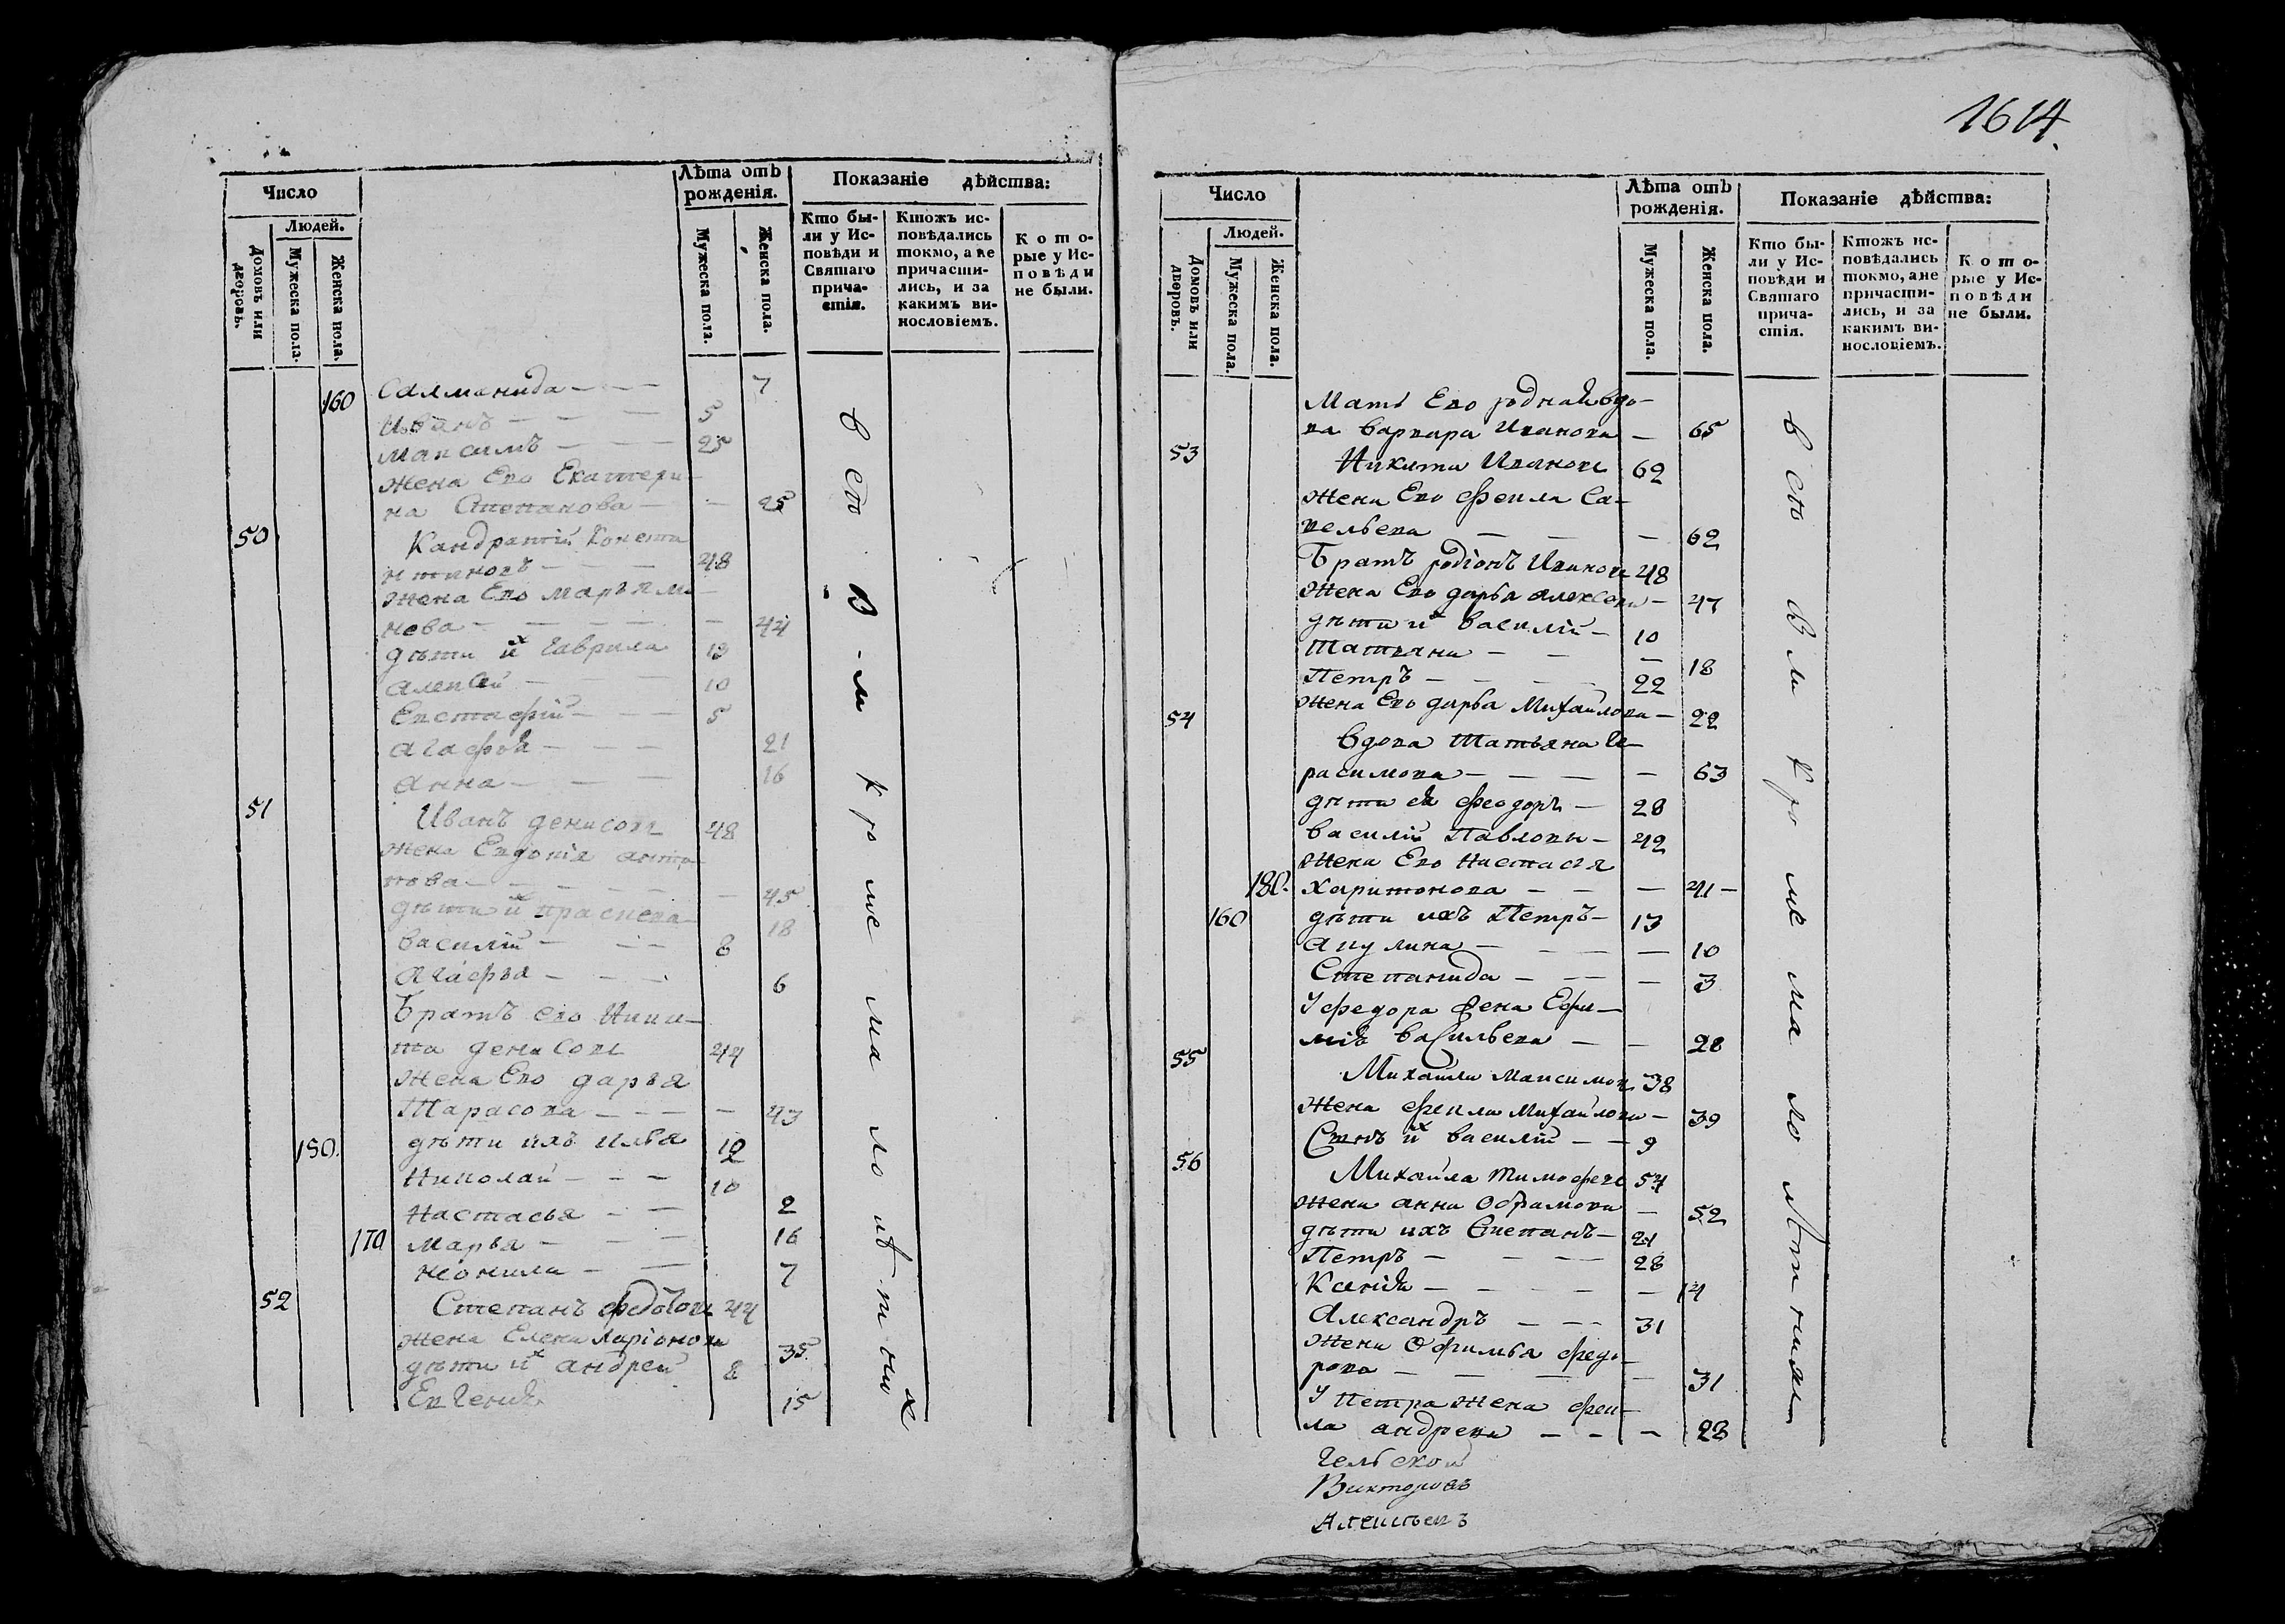 Число
Людей.
Домовъ или дворовъ.
Мужеска пола.
Женска пола.
Лѣта отъ рожденія.
Мужеска пола.
Женска пола.
Показаніе дѣйства:
Кто бы-
ли у Ис-
повѣди и
Святаго
прича-
стія.
Ктожъ ис-
повѣдались
токмо, а не
причасти-
лись, и за
какимъ ви-
нословіемъ.
К о т о-
рые у Ис-
п о в ѣ д и
не были.
160 Салманида — 7
Иванъ — 5
Максимъ — 25
жена Ево Екатери-
на Степанова — 25
50 Кандратій Конста
нтиновъ — 48
жена Ево Марья
нова — 44
дѣти ихъ Гаврила 13
Алексей — 10
Евстафій — 5
Агафья — 21
Анна — 16
51 Иванъ денисовъ 48
жена Евдокія
пова — 45
дѣти ихъ праскева 18
Василій — 8
Агафья — 6
Братъ ево Ники-
та денисовъ 44
жена Ево дарья
Тарасова — 43
150. дѣти ихъ илья 12
Николай — 10
Настасья — 2
170 Марья — 16
неонила — 7
52 Степанъ федотовъ 44
жена Елена Ларіонова 35
дѣти ихъ андрей 8
Евгенія 15
всѣ
кроме малолѣтних
1614.
Число
Людей.
Домовъ или дворовъ.
Мужеска пола.
Женска пола.
Лѣта отъ рожденія.
Мужеска пола.
Женска пола.
Показаніе дѣйства:
Кто бы-
ли у Ис-
повѣди и
Святаго
прича-
стія.
Ктожъ ис-
повѣдались
токмо, а не
причасти-
лись, и за
какимъ ви-
нословіемъ.
К о т о-
рые у Ис-
п о в ѣ д и
не были.
Мать Ево родная вдо-
ва варвара Иванова — 65
53 Никита Иванов 62
жена Ево фекла Са-
вельева — 62
Братъ родіонъ Иванов 48
жена Ево дарья алексева — 47
дѣти ихъ василій — 10
Татьяна — 18
Петръ — 22
жена Ево дарья Михайлова — 22
54 вдова Татьяна Ге-
расимова — 63
дѣти ея феодоръ — 28
василій Павловы — 42
жена Ево Настасья
180. харитонова — 41 —
160 дѣти ихъ Петръ — 13
Акулина — 10
Степанида — 3
У федора жена Ефи-
мія васильева — 28
55 Михайла Максимов 38
жена фекла Михайлова — 39
Сынъ ихъ василій — 9
56 Михайла Тимофеев 54
жена анна Обрамова — 52
дѣти ихъ Степанъ — 21
Петръ — 28
Ксенія — 14
Александръ — 31
жена Офимья федо-
рова — 31
У Петра жена фек-
ла андрева — 28
всѣ
кроме малолѣтних
Викторовъ